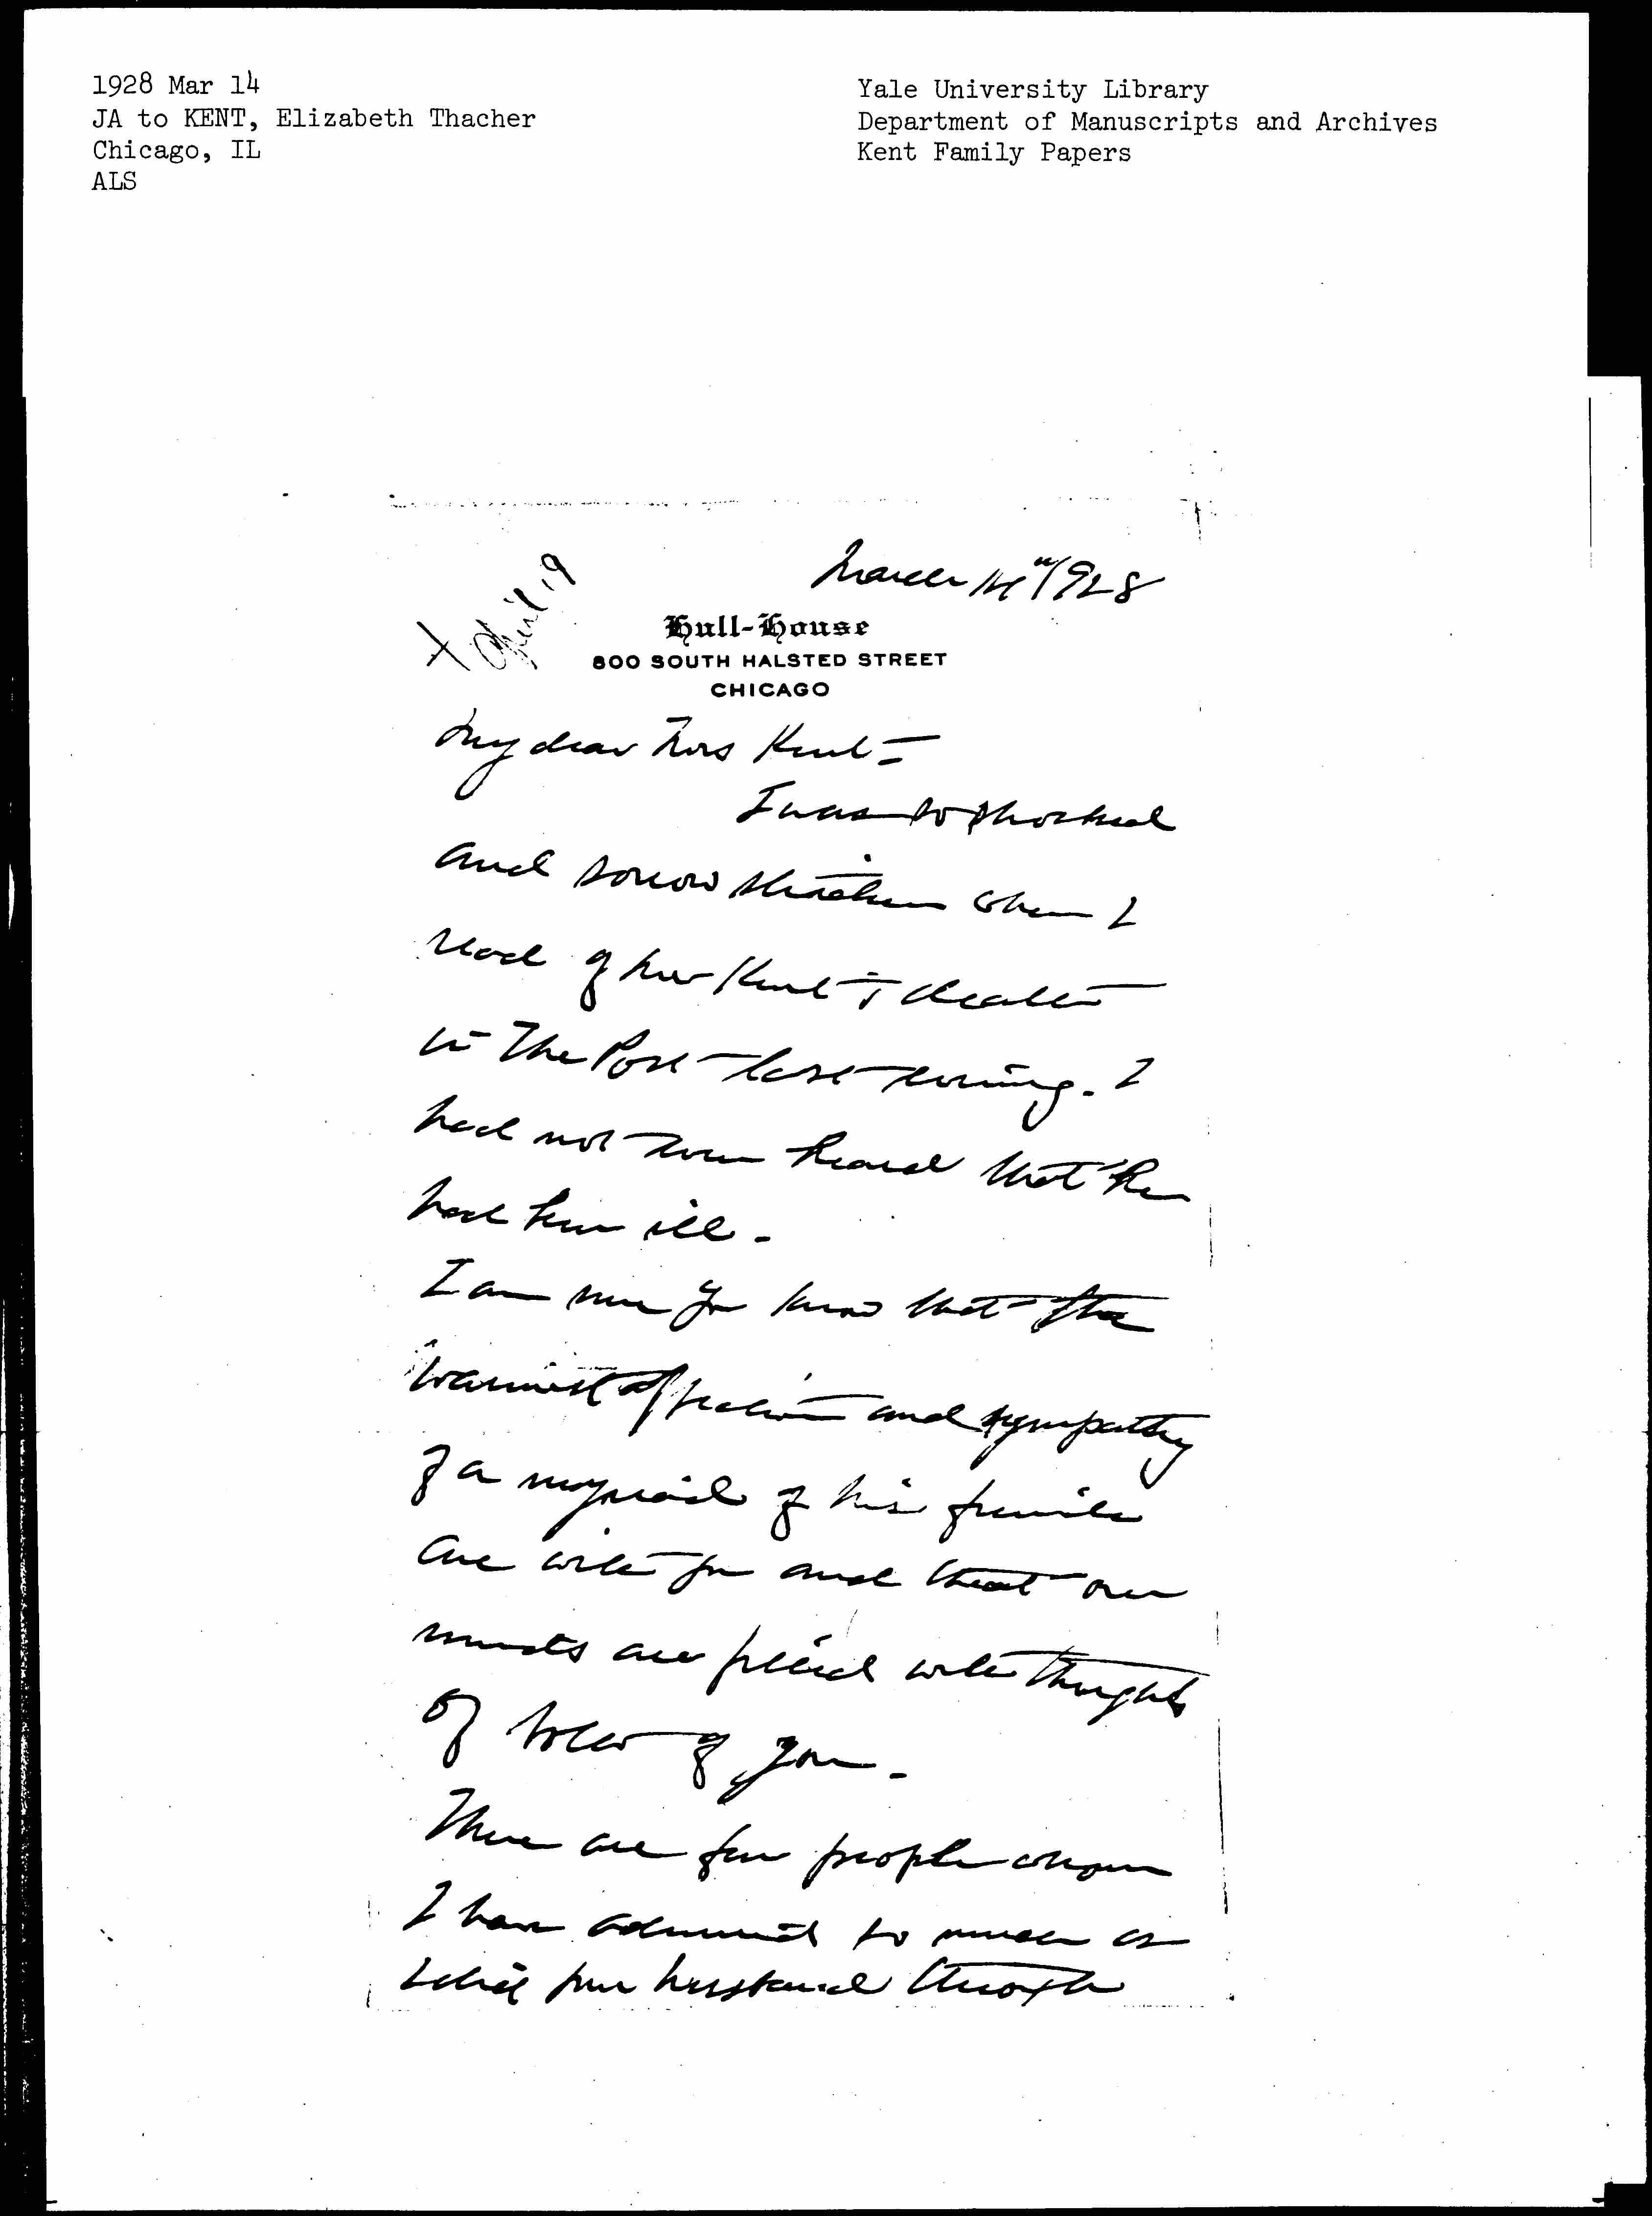 1928 Mar 14
JA to KENT, Elizabeth Thacher
Chicago, IL
ALS
Yale University Library
Department of Manuscripts and Archives
Kent Family Papers
March 14" 1928
x April 19
Hull-House
800 SOUTH HALSTED STREET
CHICAGO
My dear Mrs Kent -
I was so shocked
and sorrow stricken when I
read of Mr Kent's death
in The Post last evening. I
had not even heard that he
had been ill -
I am sure you know that the
warmest affection and sympathy
of a myriad of his friends
are with you and that our
minds are filled with thoughts
of both of you -
There are few people whom
I have admired so much as
I did your husband through